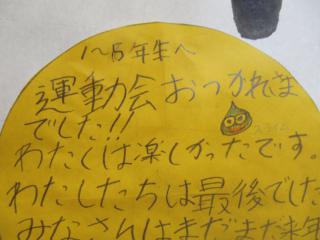 1〜5年生へ
運動会おつかれさま
でした!!
スライム
わたくしは楽しかったです。
わたしたちは最後でした
みなさんはまだまだ来年